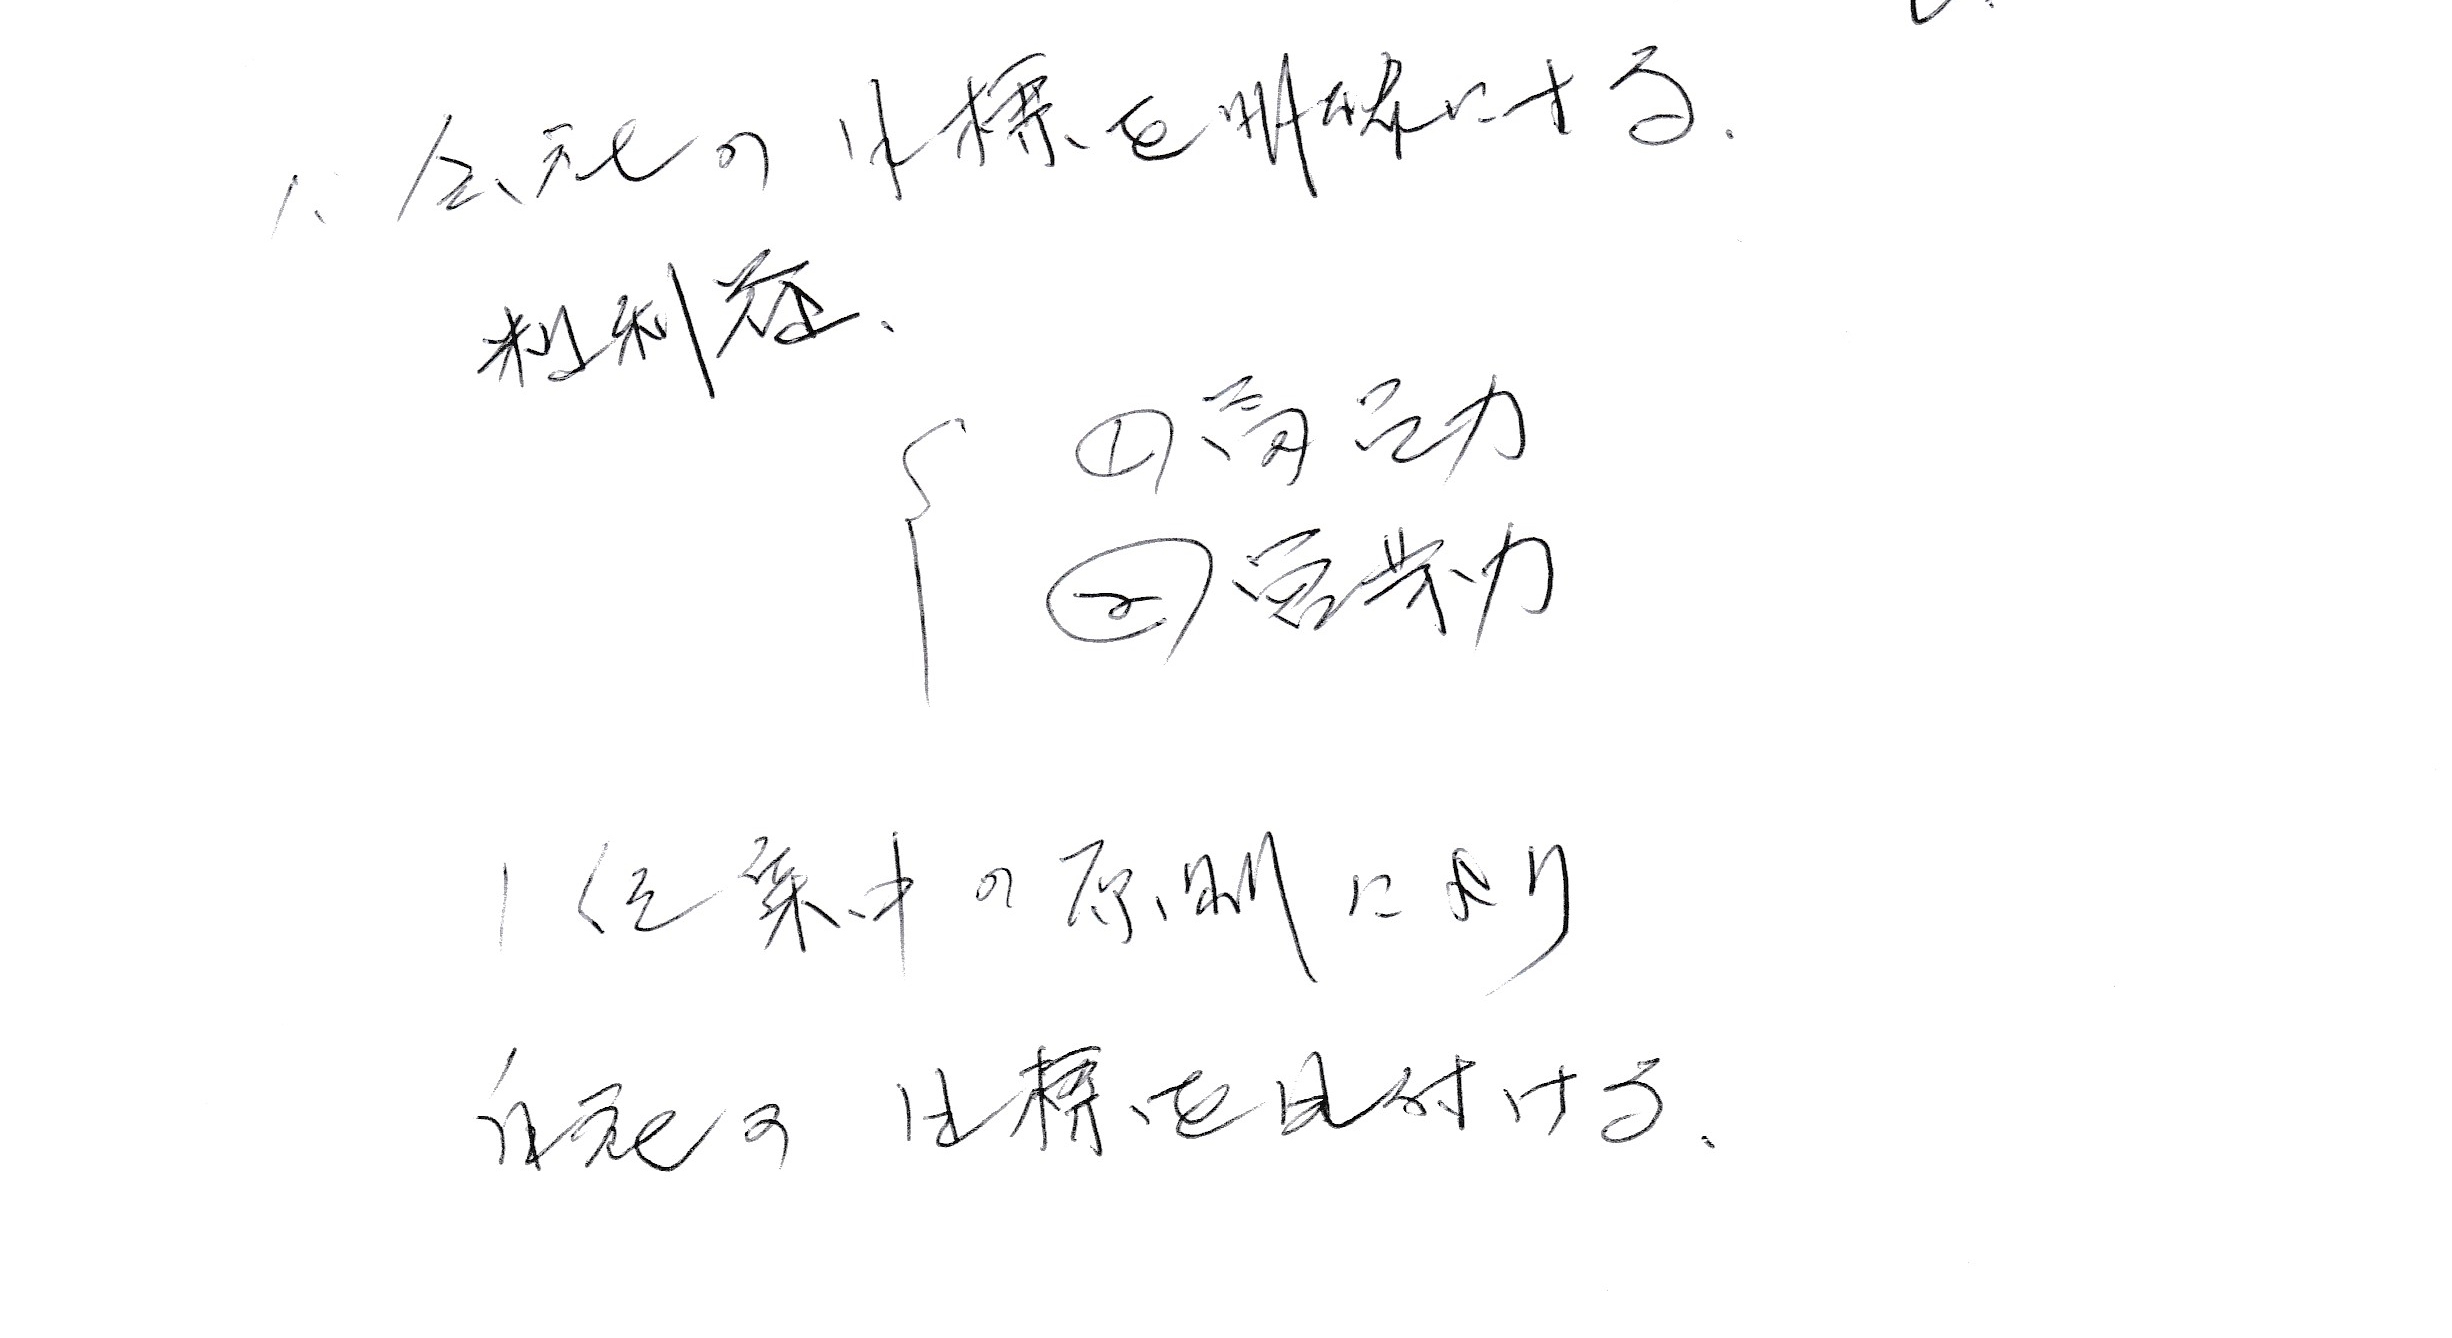 1. 会社の目標を明確にする.
粗利益、
①商品力
②営業力
1位集中の原則により
自社の目標を見付ける、